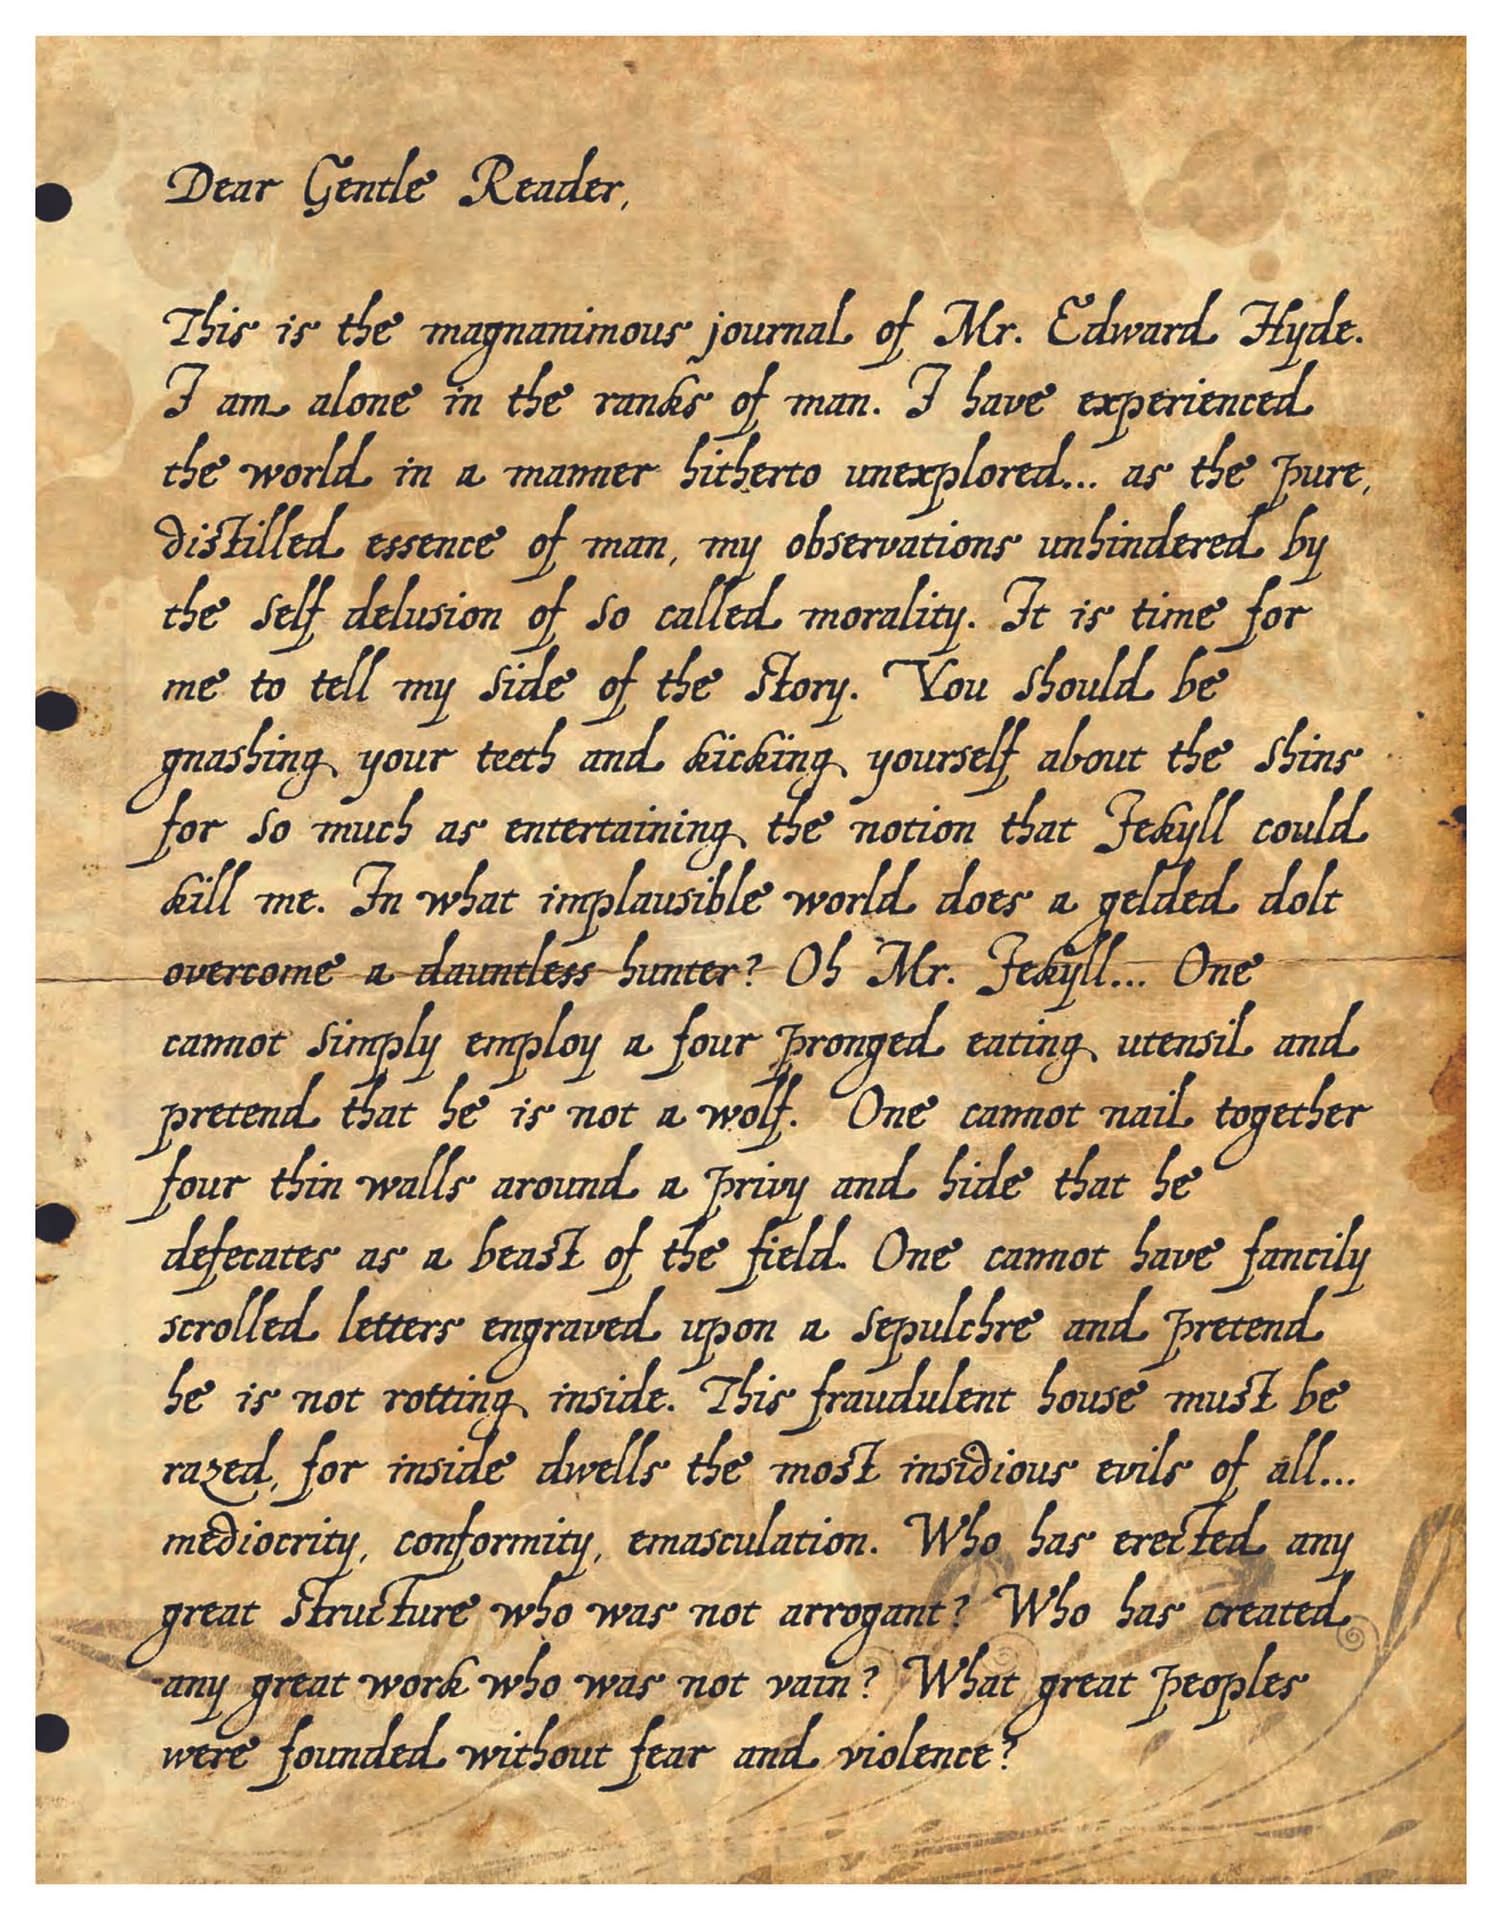 Dear Gentle Reader,
This is the magnanimous journal of Mr. Edward Hyde.
I am alone in the ranks of man. I have experienced
the world in a manner hitherto unexplored... as the pure,
distilled essence of man, my observations unhindered by
the self delusion of so called morality. It is time for
me to tell my side of the story. You should be
gnashing your teeth and kicking yourself about the shins
for so much as entertaining the notion that Jekyll could
kill me. In what implausible world does a gelded dolt
overcome a dauntless hunter? Oh Mr. Jekyll... One
cannot simply employ a four pronged eating utensil and
pretend that he is not a wolf. One cannot nail together
four thin walls around a privy and hide that he
defecates as a beast of the field. One cannot have fancily
scrolled letters engraved upon a sepulchre and pretend
he is not rotting inside. This fraudulent house must be
razed, for inside dwells the most insidious evils of all...
mediocrity, conformity, emasculation. Who has erected any
great structure who was not arrogant? Who has created
any great work who was not vain? What great peoples
were founded without fear and violence?